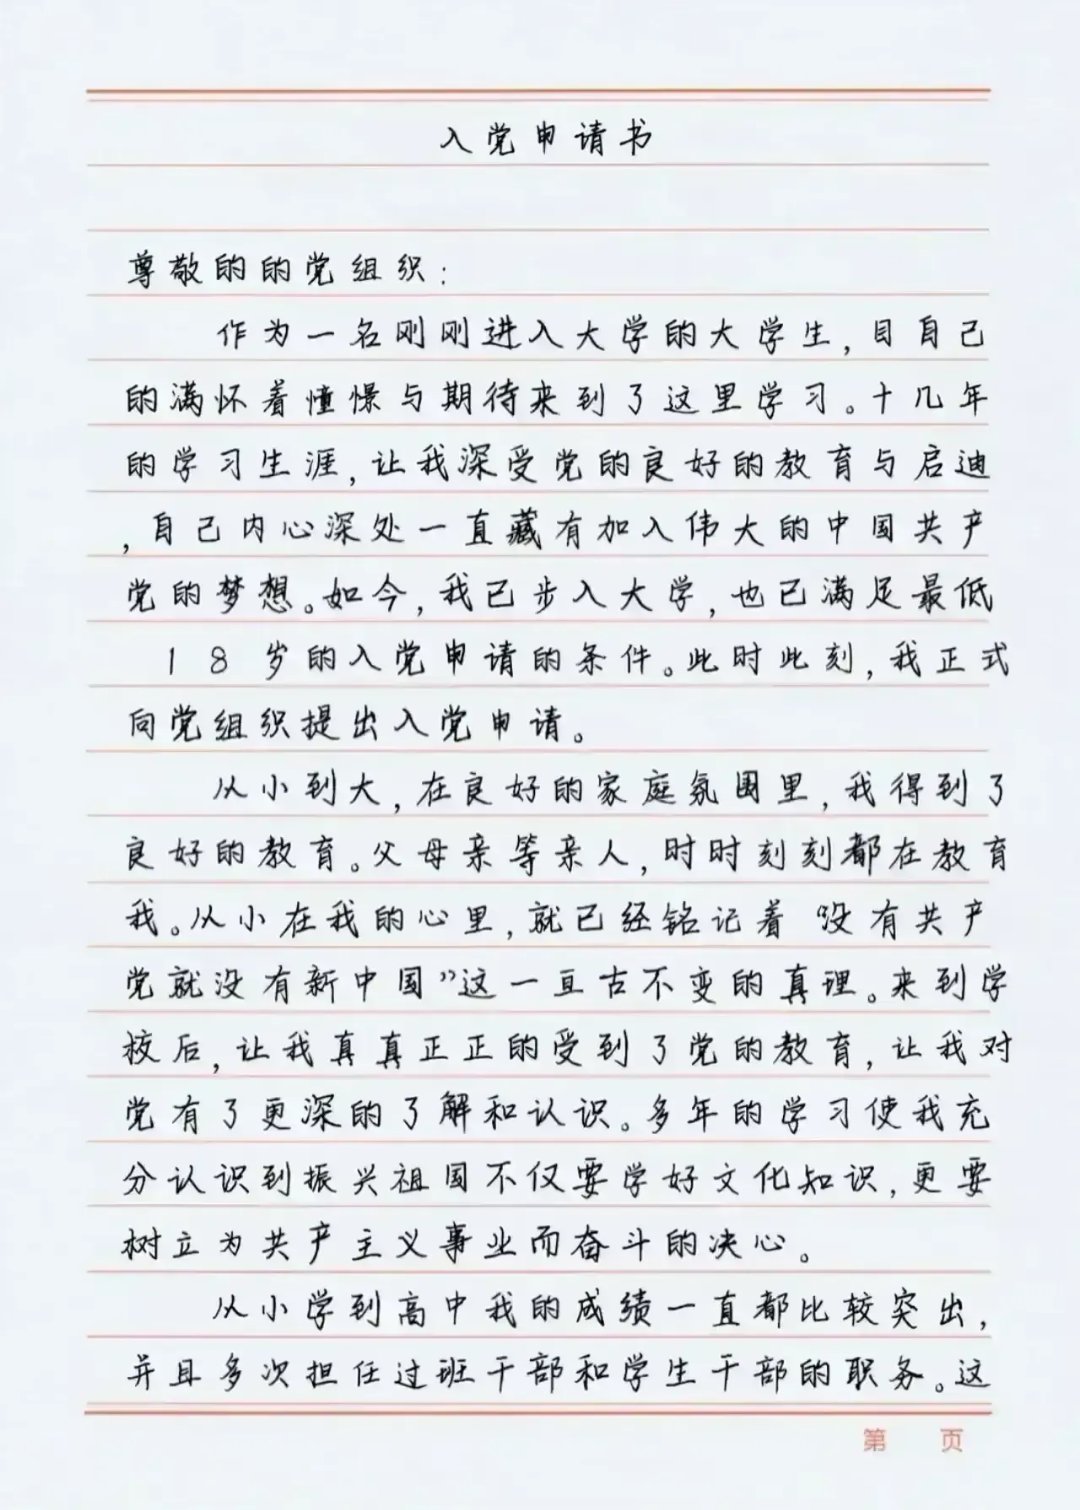 入党申请书
尊敬的的党组织：
作为一名刚刚进入大学的大学生，目自己
的满怀着憧憬与期待来到了这里学习。十几年
的学习生涯，让我深受党的良好的教育与启迪
，自己内心深处一直藏有加入伟大的中国共产
党的梦想。如今，我已步入大学，也已满足最低
18岁的入党申请的条件。此时此刻，我正式
向党组织提出入党申请。
从小到大，在良好的家庭氛围里，我得到了
良好的教育。父母亲等亲人，时时刻刻都在教育
我。从小在我的心里，就已经铭记着“没有共产
党就没有新中国”这一亘古不变的真理。来到学
校后，让我真真正正的受到了党的教育，让我对
党有了更深的了解和认识。多年的学习使我充
分认识到振兴祖国不仅要学好文化知识，更要
树立为共产主义事业而奋斗的决心。
从小学到高中我的成绩一直都比较突出，
并且多次担任过班干部和学生干部的职务。这
第 页